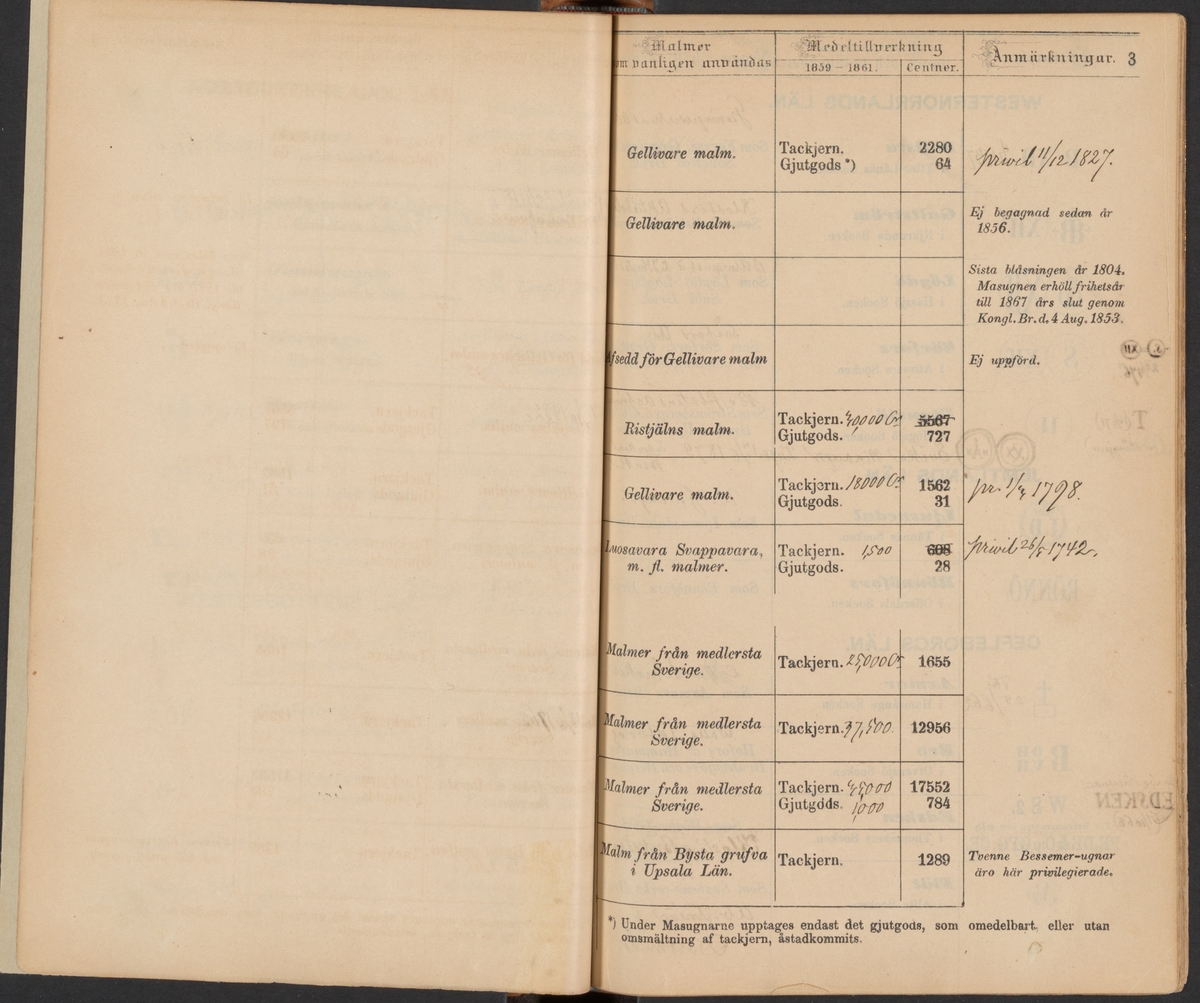 Malmer
om vanligen användas
Medeltillverkning
1859 – 1861.
Centner.
Anmärkningar. 3
Gellivare malm.
Tackjern. 2280
Gjutgods *) 64
privil 11/12 1827.
Gellivare malm.
Ej begagnad sedan år
1856.
Sista blåsningen år 1804.
Masugnen erhöll frihetsår
till 1867 års slut genom
Kongl. Br. d. 4 Aug. 1853.
Afsedd för Gellivare malm
Ej uppförd.
Ristjälns malm.
Tackjern. 5567
Gjutgods. 727
Gellivare malm.
Tackjern. 18000 1562
Gjutgods. 31
1798.
Luosavara Svappavara,
m. fl. malmer.
Tackjern. 1,500 608
Gjutgods. 28
privil 1742.
Malmer från medlersta
Sverige.
Tackjern. 25,000 1655
Malmer från medlersta
Sverige.
Tackjern. 37,500 12956
Malmer från medlersta
Sverige.
Tackjern. 17552
Gjutgods. 1000 784
Malm från Bysta grufva
i Upsala Län.
Tackjern. 1289
Tvenne Bessemer-ugnar
äro här privilegierade.
*) Under Masugnarne upptages endast det gjutgods, som omedelbart, eller utan
omsmältning af tackjern, åstadkommits.